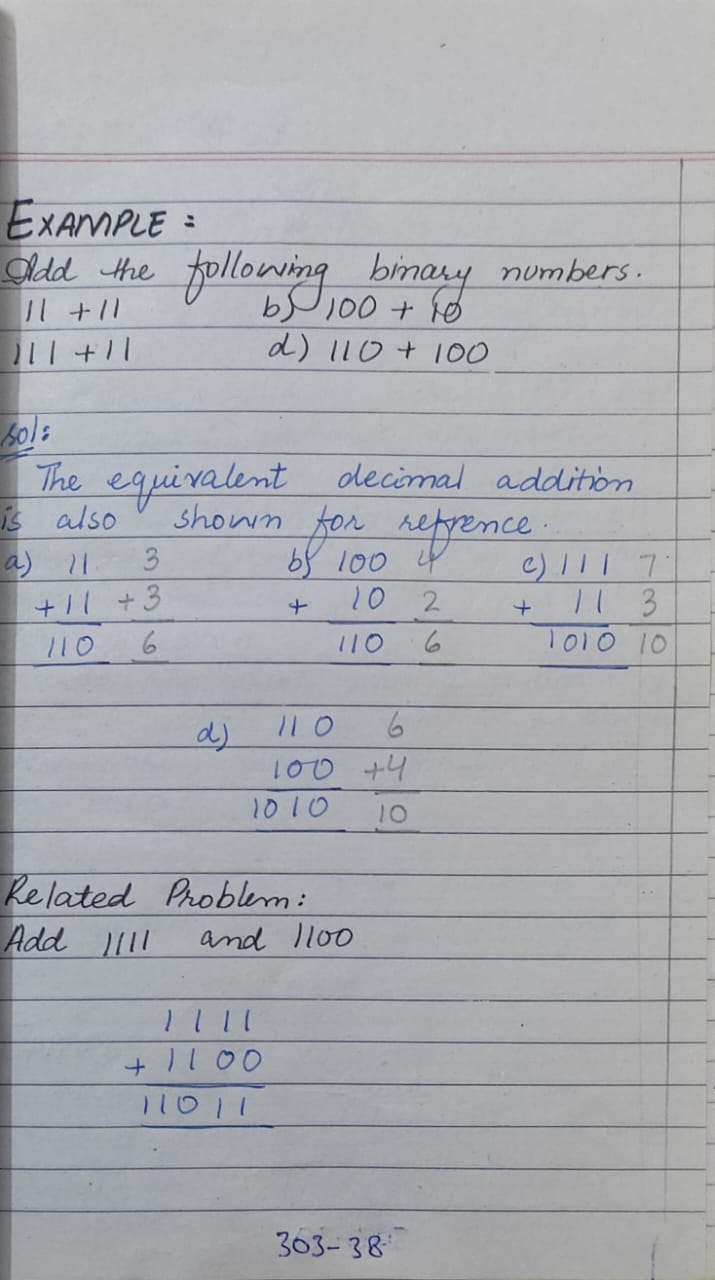 EXAMPLE :
Add the following binary numbers.
11 + 11 b) 100 + 10
111 + 11 d) 110 + 100
sol:
The equivalent decimal addition
is also shown for refrence.
a) 11 3 b) 100 4 c) 111 7
+ 11 + 3 + 10 2 + 11 3
110 6 110 6 1010 10
d) 110 6
100 +4
1010 10
Related Problem:
Add 1111 and 1100
1111
+ 1100
11011
303-38